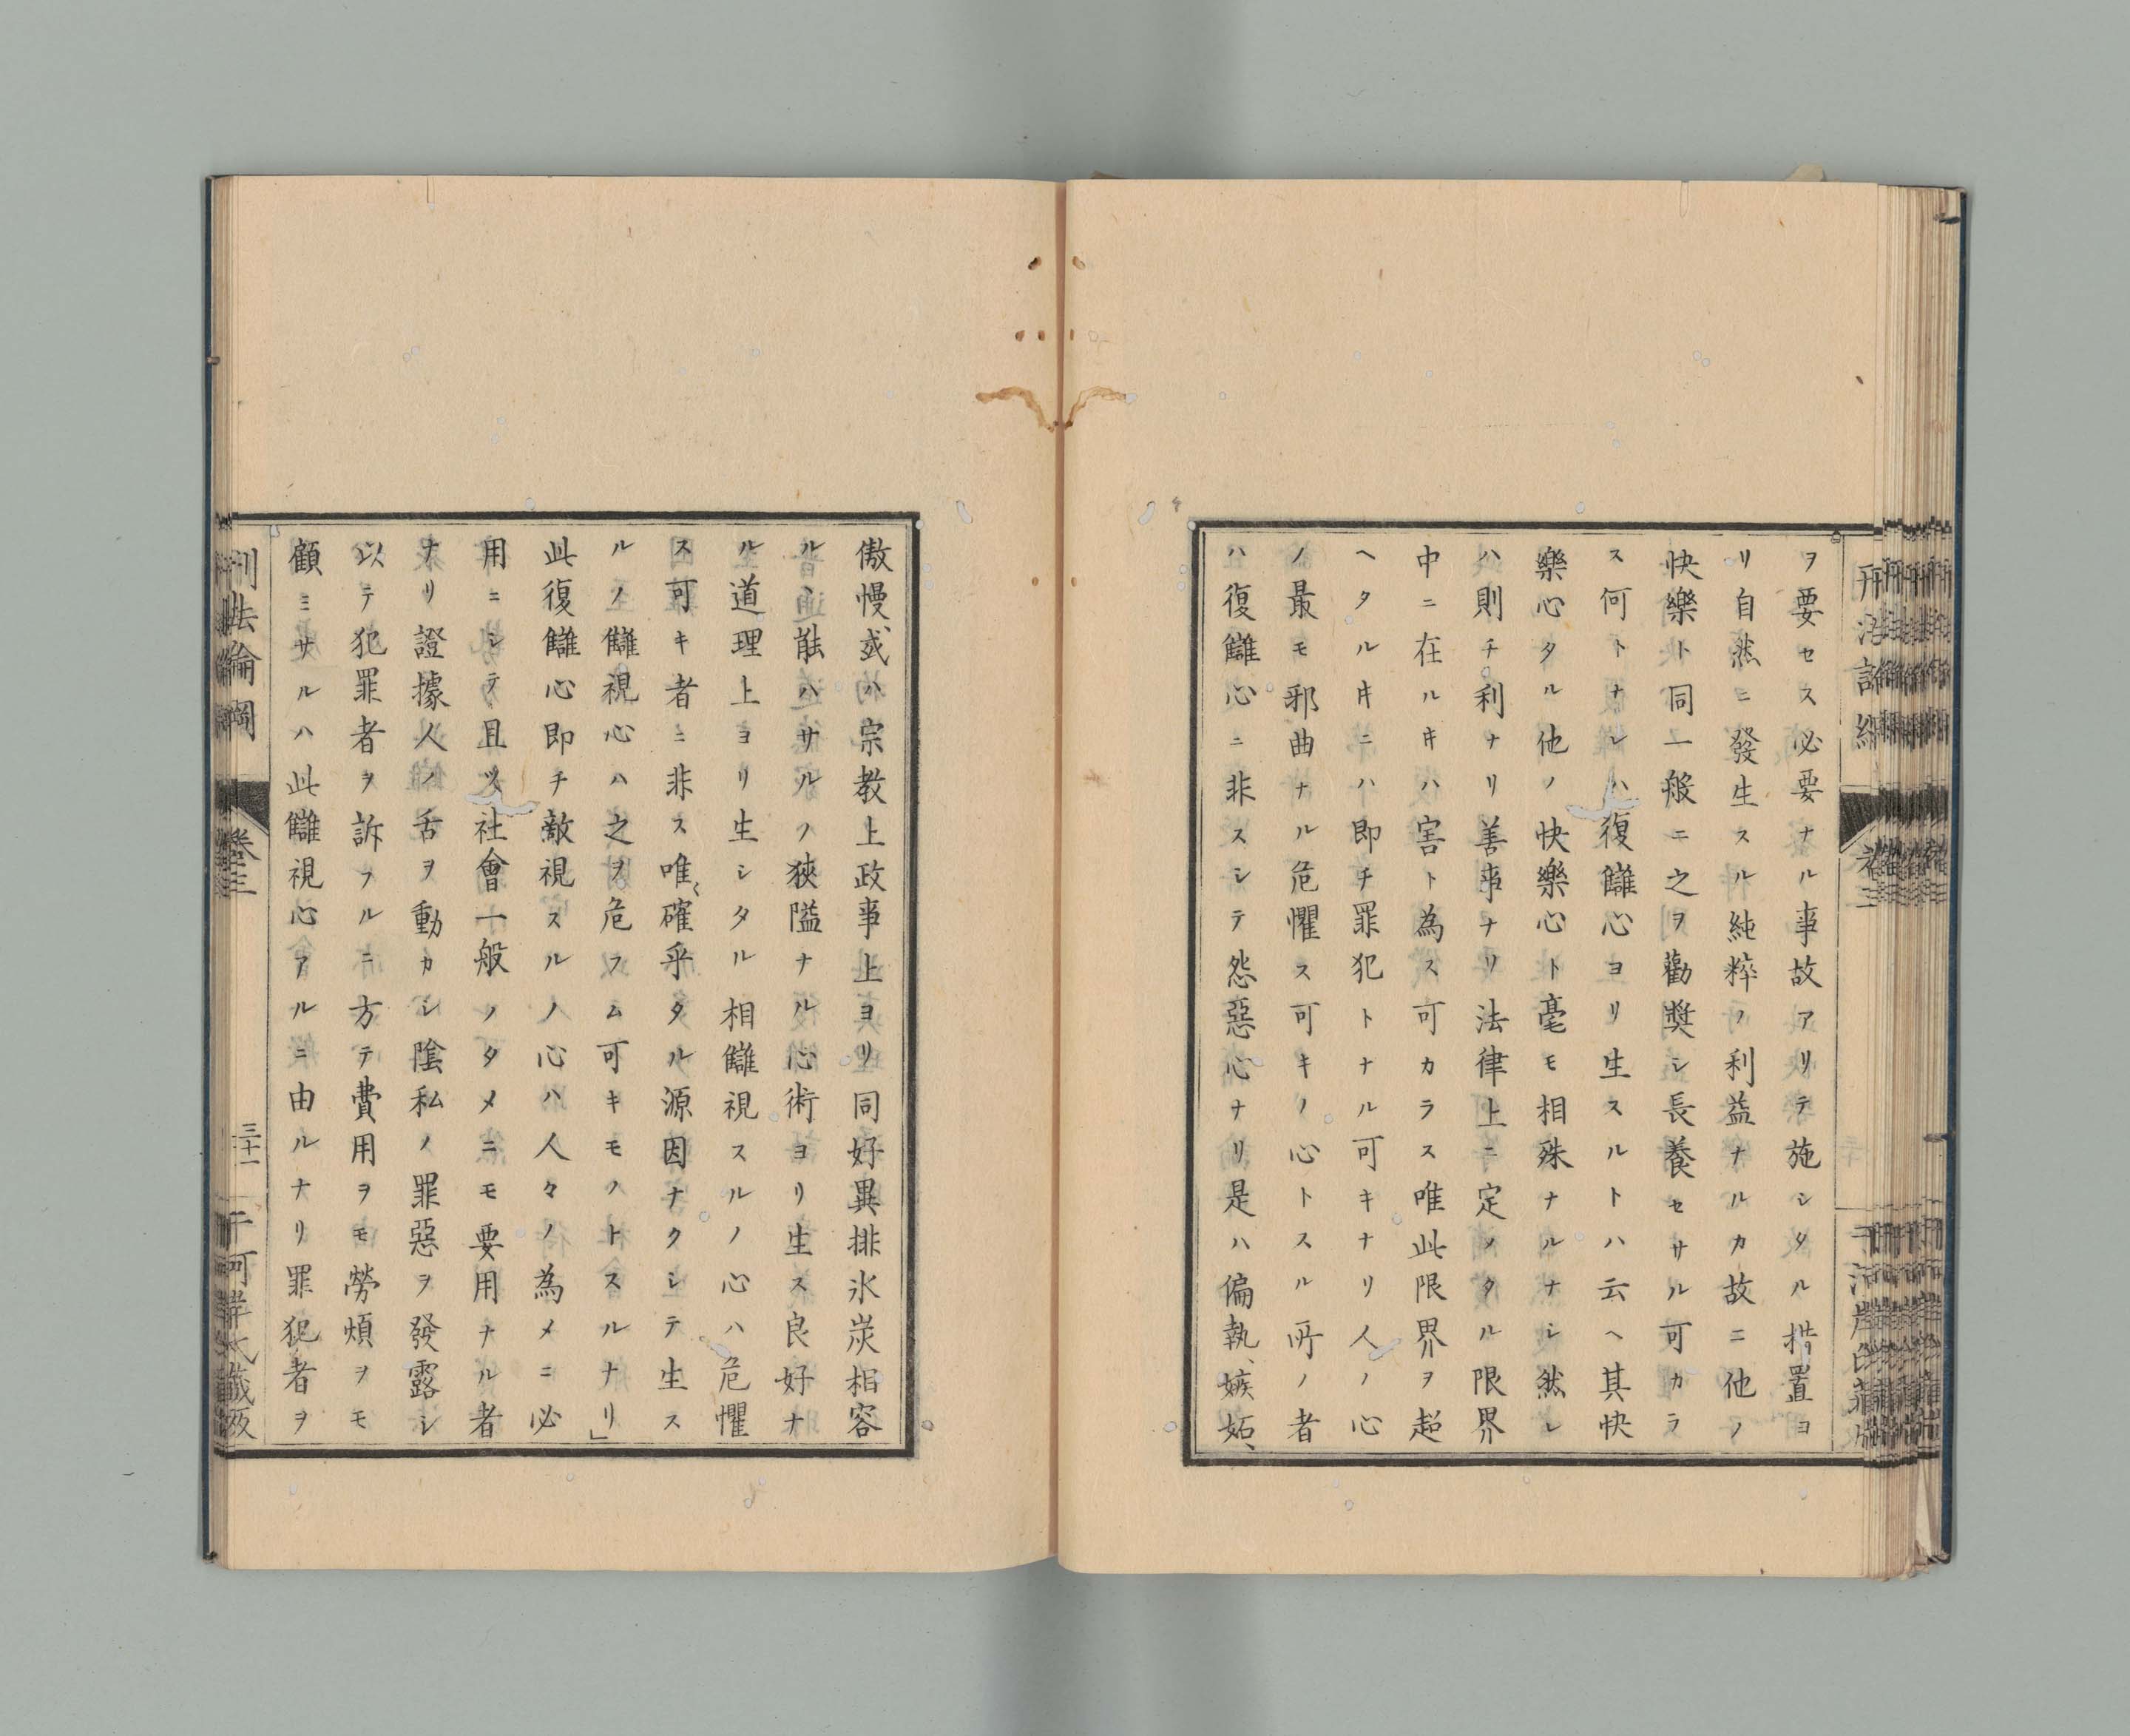 ヲ要セス必要ナル事故アリテ施シタル措置ヨ
リ自然ニ發生スル純粹ノ利益ナルカ故ニ他ノ
快樂ト同一般ニ之ヲ勸奬シ長養セサル可カラ
ス何トナレハ復讎心ヨリ生スルトハ云ヘ其快
樂心タル他ノ快樂心ト毫モ相殊ナルナシ然レ
ハ則チ利ナリ善事ナリ法律上ニ定メタル限界
中ニ在ルキハ害ト為ス可カラス唯此限界ヲ超
ヘタルキニハ即チ罪犯トナル可キナリ人ノ心
ノ最モ邪曲ナル危懼ス可キノ心トスル所ノ者
ハ復讎心ニ非スシテ怨惡心ナリ是ハ偏執、嫉妬、
傲慢、或ハ宗教上政事上ヨリ同好異排氷炭相容
ルヽ能ハサルノ狹隘ナル心術ヨリ生ス良好ナ
ル道理上ヨリ生シタル相讎視スルノ心ハ危懼
ス可キ者ニ非ス唯〻確乎タル源因ナクシテ生ス
ルノ讎視心ハ之ヲ危フム可キモノトスルナリ」
此復讎心即チ敵視スルノ心ハ人々ノ為メニ必
用ニシテ且ツ社會一般ノタメニモ要用ナル者
ナリ證據人ノ舌ヲ動カシ陰私ノ罪惡ヲ發露シ
以テ犯罪者ヲ訴フルニ方テ費用ヲモ勞煩ヲモ
顧ミサルハ此讎視心アルニ由ルナリ罪犯者ヲ
刑法論綱
卷三
三十一
干河岸氏藏版